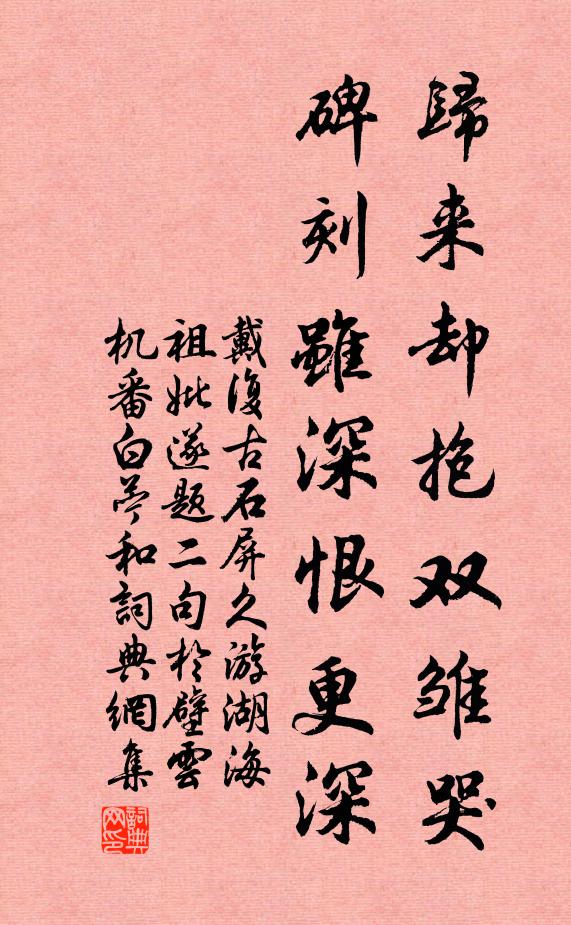 歸来却抱双雏哭
碑刻雖深恨更深
戴復古石屏久游湖海
祖妣遂题二句於壁雲
机番白苹和詞典網集
詞典网印